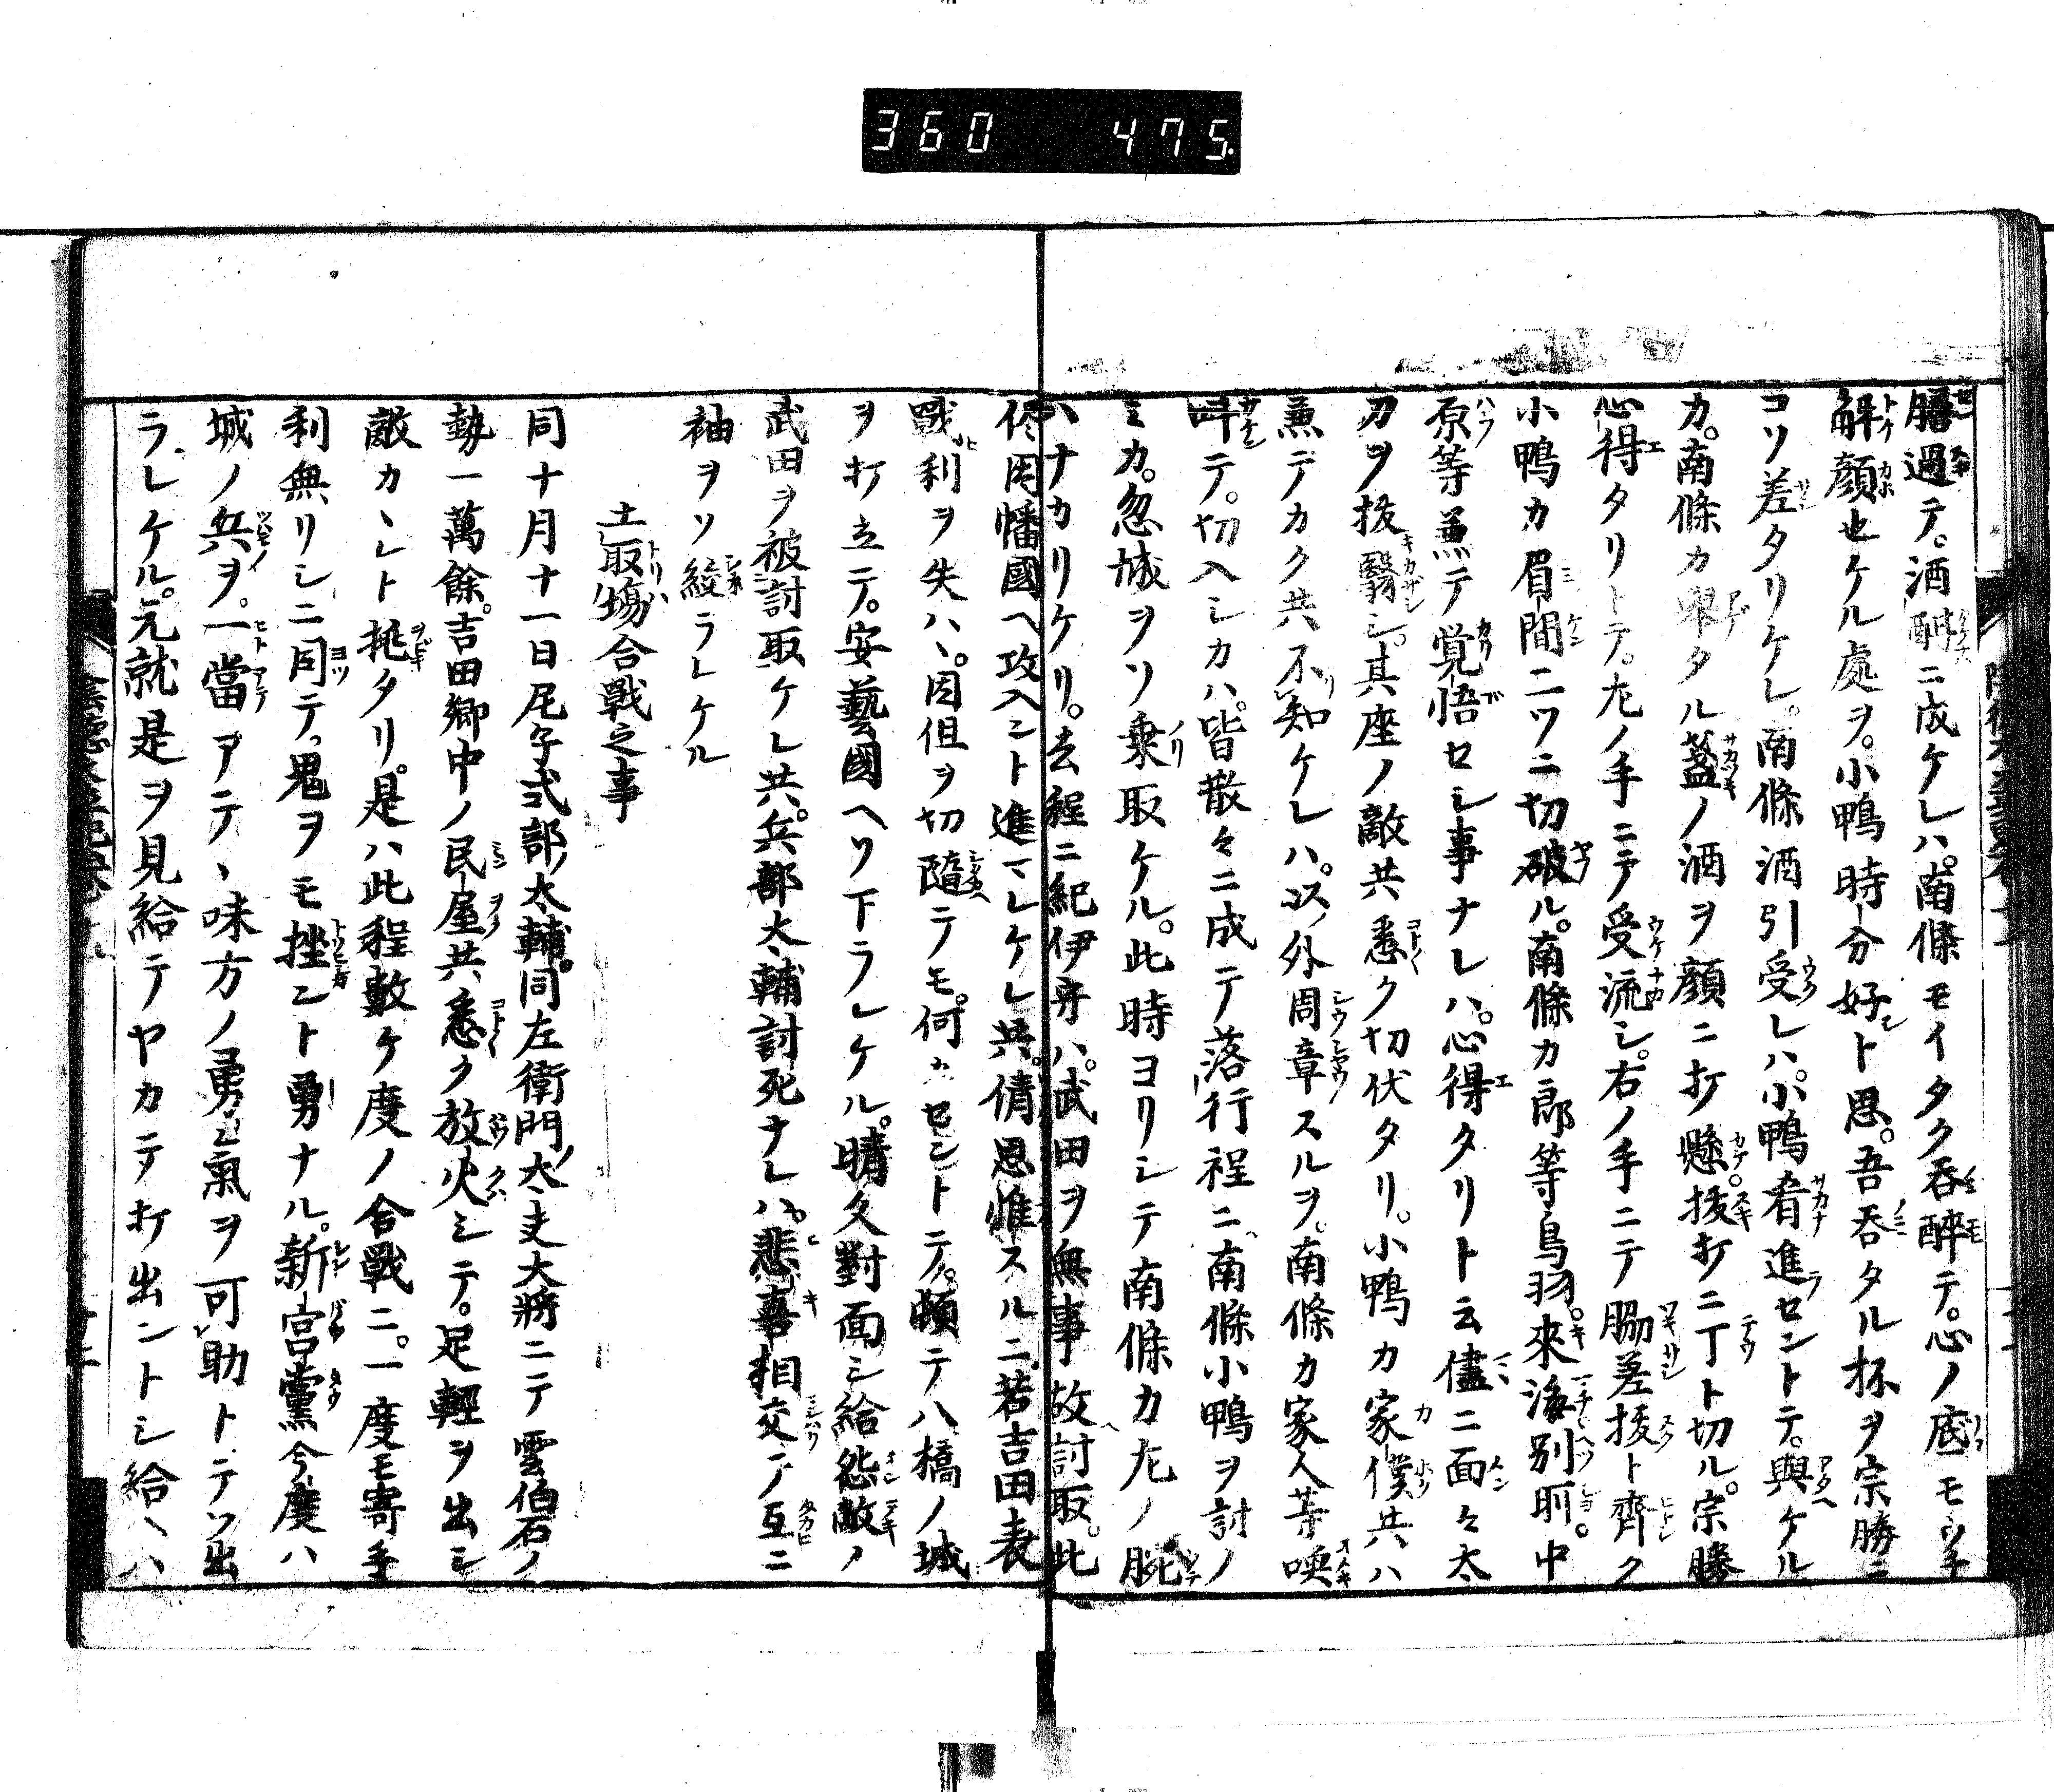 360 475
膳過テ。酒酣ニ成ケレハ。南條モイタク呑醉テ。心ノ底モウチ
解顏也ケル處ヲ。小鴨時分好ト思。吾呑タル杯ヲ宗勝ニ
コソ差タリケレ。南條酒引受レハ。小鴨肴進セントテ。與ケル
カ。南條カ擧タル盞ノ酒ヲ顏ニ打懸。拔打ニ丁ト切ル。宗勝
心得タリトテ。左ノ手ニテ受流シ。右ノ手ニテ脇差拔ト齊ク
小鴨カ眉間二ツニ切破ル。南條カ郎等鳥羽。來海別所。中
原等兼テ覚悟セシ事ナレハ。心得タリト云儘ニ面々太
刀ヲ拔翳シ。其座ノ敵共悉ク切伏タリ。小鴨カ家僕共ハ
兼テカク共不知ケレハ。以外周章スルヲ。南條カ家人等喚
叫テ。切入シカハ。皆散々ニ成テ落行程ニ南條小鴨ヲ討ノ
ミカ。忽城ヲソ乗取ケル。此時ヨリシテ南條カ左ノ腕
ハナカリケリ。去程ニ紀伊守ハ。武田ヲ無事故討取。此
侭因幡國ヘ攻入ント進マレケレ共。倩思惟スルニ若吉田表
戰利ヲ失ハヽ。因伯ヲ切隨テモ。何カセントテ。頓テ八橋ノ城
ヲ打立テ。安藝國ヘソ下ラレケル。晴久對面シ給怨敵ノ
武田ヲ被討取ケレ共。兵部太輔討死ナレハ。悲喜相交テ互ニ
袖ヲソ絞ラレケル
土取塲合戰之事
同十月十一日尾子式部太輔。同左衛門太夫大將ニテ雲伯石ノ
勢一萬餘。吉田郷中ノ民屋共悉ク放火シテ。足輕ヲ出シ
敵カヽレト挑タリ。是ハ此程數ケ度ノ合戰ニ。一度モ寄手
利無リシニ同テ。鬼ヲモ挫ント勇ナル。新宮黨今度ハ
城ノ兵ヲ。一當アテヽ味方ノ勇氣ヲ可助トテソ出
ラレケル。元就是ヲ見給テヤカテ打出ントシ給ヘハ